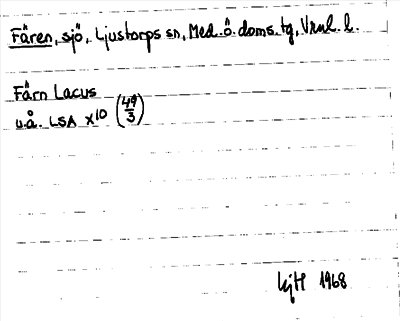 Fåren, sjö, Ljustorps sn, Med.ö.doms.tg, Vnl. l.
Fårn Lacus
u.å. LSA X10 (49/3)
1968